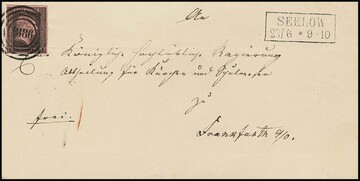 SEELOW
27/6 * 9-10
An
Königliche Hochlöbliche Regierung
Abtheilung für Kirchen und Schulwesen
zu
Frankfurth a/O.
frei.